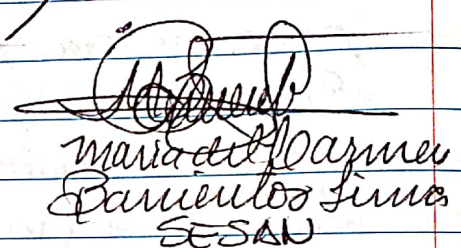 maria del Carmen
Barrientos Lima
SESAN